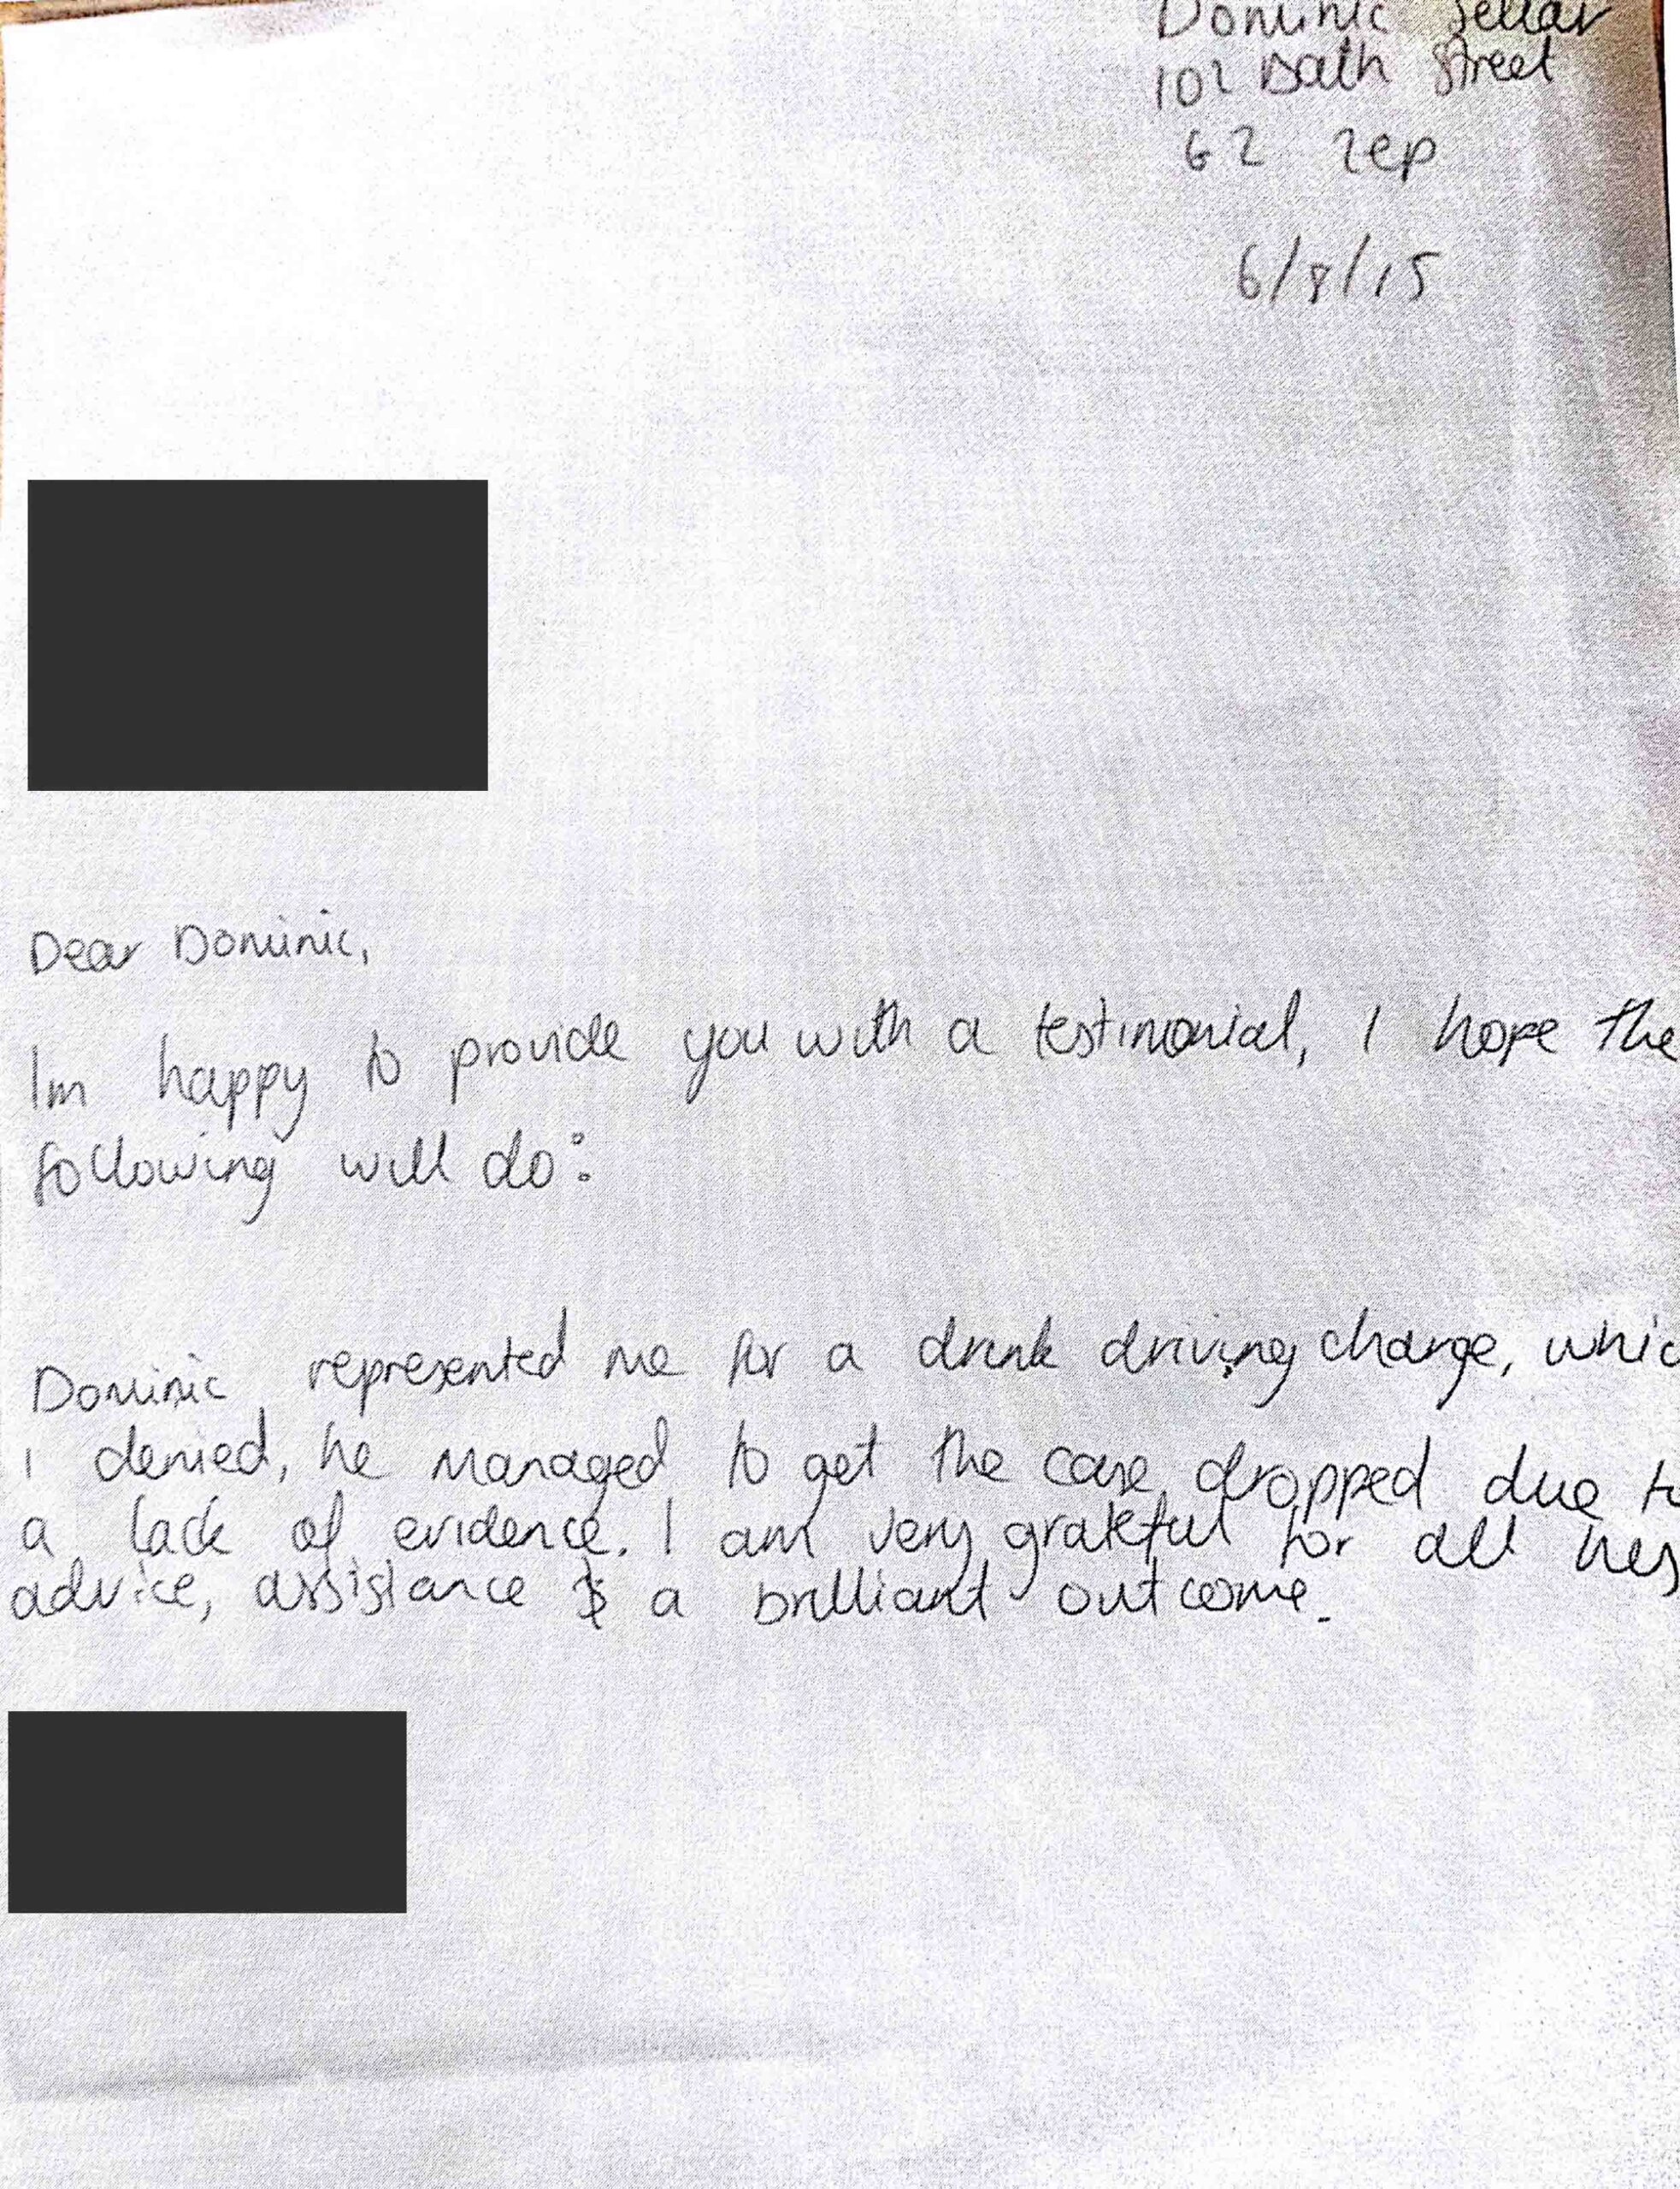 Dominic Sellar
102 Bath Street
G2 2ep
6/8/15
Dear Dominic,
Im happy to provide you with a testimonial, I hope the
following will do:
Dominic represented me for a drink driving charge, whic
I denied, he managed to get the case dropped due to
a lack of evidence. I am very grateful for all his
advice, assistance & a brilliant outcome.